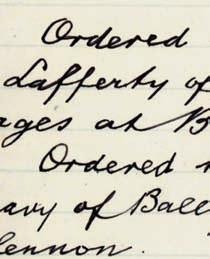 Ordered
Lafferty of
ages at B
Ordered
avy of Ball
lennon.